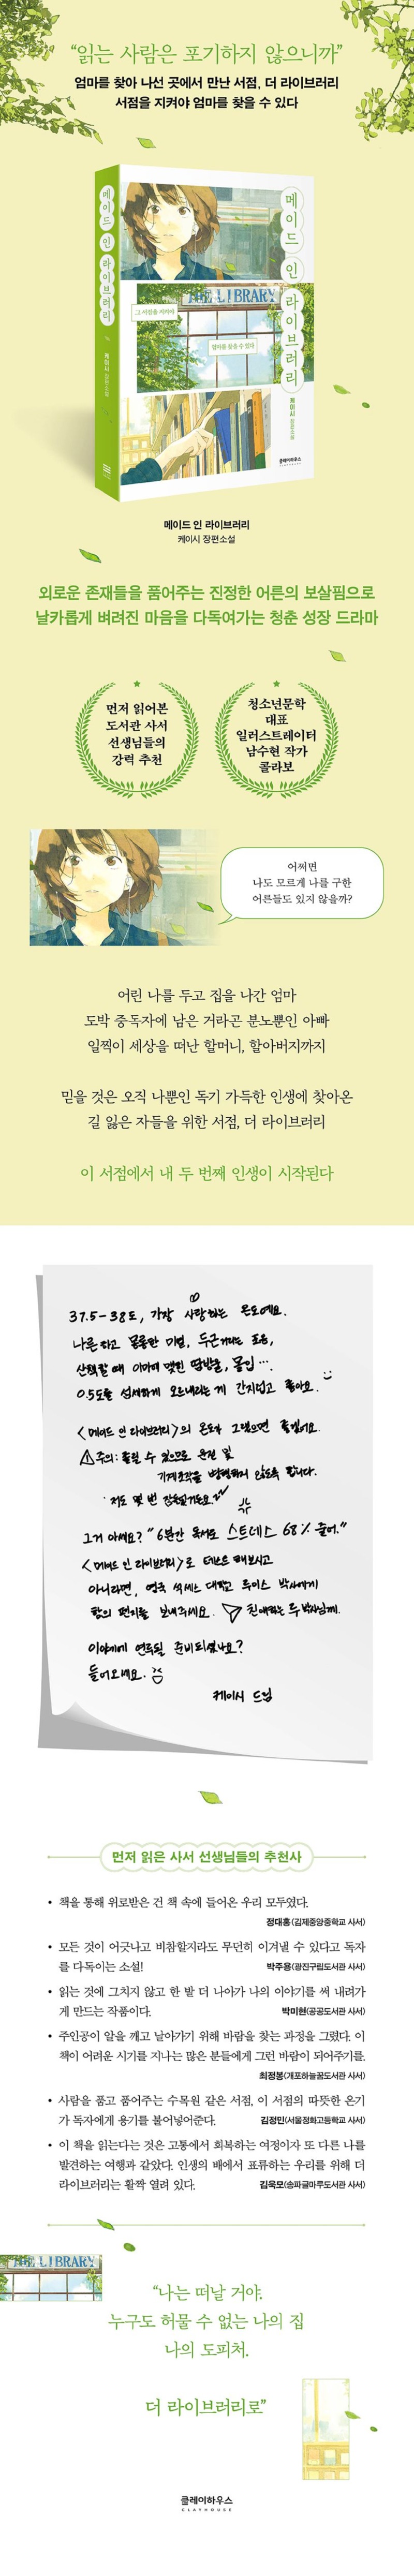 “읽는 사람은 포기하지 않으니까”
엄마를 찾아 나선 곳에서 만난 서점, 더 라이브러리
서점을 지켜야 엄마를 찾을 수 있다
메이드 인 라이브러리
케이시 장편소설
메이드 인 라이브러리
케이시 장편소설
THE LIBRARY
그 서점을 지켜야
엄마를 찾을 수 있다
클레이하우스
CLAYHOUSE
메이드 인 라이브러리
케이시 장편소설
외로운 존재들을 품어주는 진정한 어른의 보살핌으로
날카롭게 벼려진 마음을 다독여가는 청춘 성장 드라마
먼저 읽어본
도서관 사서
선생님들의
강력 추천
청소년문학
대표
일러스트레이터
남수현 작가
콜라보
어쩌면
나도 모르게 나를 구한
어른들도 있지 않을까?
어린 나를 두고 집을 나간 엄마
도박 중독자에 남은 거라곤 분노뿐인 아빠
일찍이 세상을 떠난 할머니, 할아버지까지
믿을 것은 오직 나뿐인 독기 가득한 인생에 찾아온
길 잃은 자들을 위한 서점, 더 라이브러리
이 서점에서 내 두 번째 인생이 시작된다
37.5-38도, 가장 사랑하는 온도예요.
나른하고 몽롱한 미열, 두근거리는 포옹,
산책할 때 이마에 맺힌 땀방울, 몰입….
0.5도를 섬세하게 오르내리는 게 간지럽고 좋아요.
<메이드 인 라이브러리>의 온도가 그랬으면 좋겠어요.
주의: 졸릴 수 있으므로 운전 및
기계조작을 병행하지 않도록 합니다.
저도 몇 번 잠들었거든요.
그거 아세요? “6분간 독서로 스트레스 68% 줄어.”
<메이드 인 라이브러리>로 테스트 해보시고
아니라면, 영국 석세스 대학교 루이스 박사에게
항의 편지를 보내주세요. 친애하는 루 박사님께.
이야기에 연루될 준비 되셨나요?
들어오세요.
케이시 드림
먼저 읽은 사서 선생님들의 추천사
• 책을 통해 위로받은 건 책 속에 들어온 우리 모두였다.
정대홍(김제중앙중학교 사서)
• 모든 것이 어긋나고 비참할지라도 무던히 이겨낼 수 있다고 독자
를 다독이는 소설! 박주용(광진구립도서관 사서)
• 읽는 것에 그치지 않고 한 발 더 나아가 나의 이야기를 써 내려가
게 만드는 작품이다. 박미현(공공도서관 사서)
• 주인공이 알을 깨고 날아가기 위해 바람을 찾는 과정을 그렸다. 이
책이 어려운 시기를 지나는 많은 분들에게 그런 바람이 되어주기를.
최정봉(개포하늘꿈도서관 사서)
• 사람을 품고 품어주는 수목원 같은 서점, 이 서점의 따뜻한 온기
가 독자에게 용기를 불어넣어준다. 김정민(서울정화고등학교 사서)
• 이 책을 읽는다는 것은 고통에서 회복하는 여정이자 또 다른 나를
발견하는 여행과 같았다. 인생의 배에서 표류하는 우리를 위해 더
라이브러리는 활짝 열려 있다. 김욱모(송파글마루도서관 사서)
THE LIBRARY
“나는 떠날 거야.
누구도 허물 수 없는 나의 집
나의 도피처.
더 라이브러리로”
클레이하우스
CLAYHOUSE